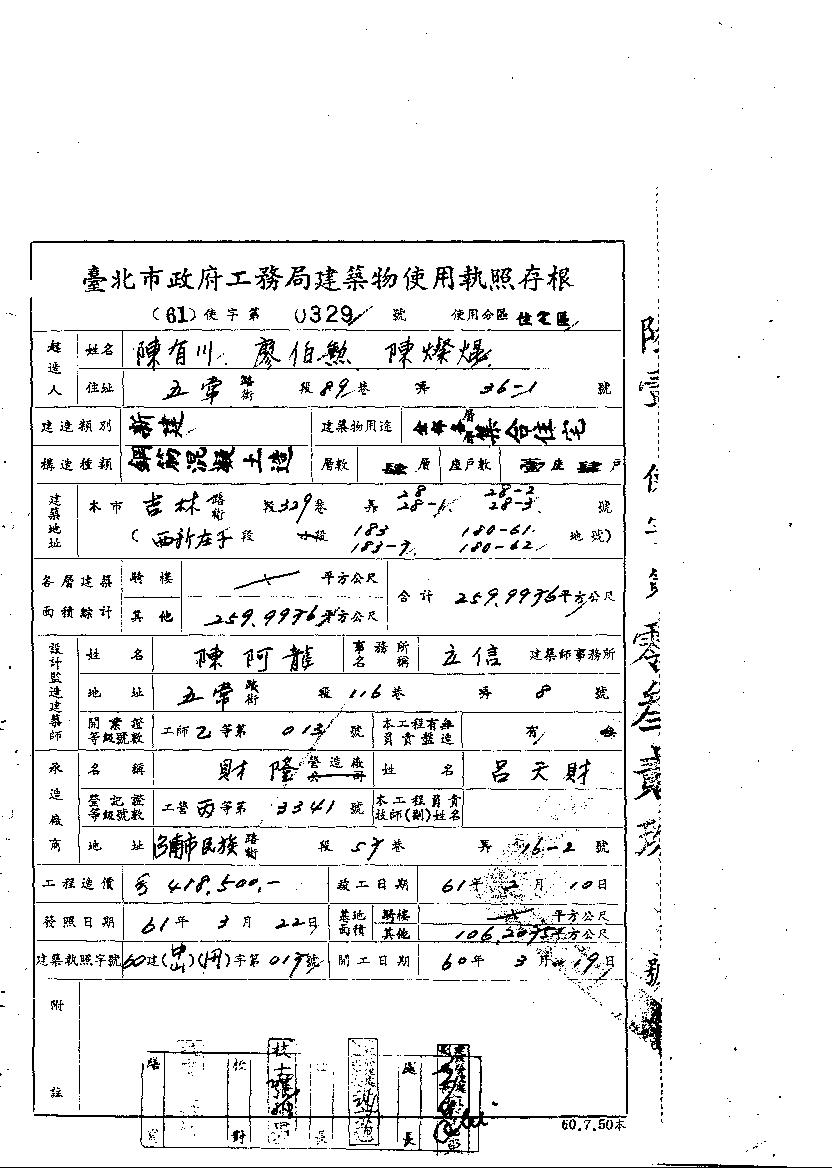 臺北市政府工務局建築物使用執照存根
(61)使字第 0329 號 使用分區 住宅區
起造人 姓名 陳有川、廖伯勲 陳燦
住址 五常 路街 段 89 巷 弄 36-1 號
建造類別 新建 建築物用途 集合住宅
構造種類 鋼筋混凝土造 層數 肆 層 座戶數 壹 座 肆 戶
建築地址 本市 吉林 路街 段 329 巷 弄 28 28-1 28-2 28-3 號
(西新庄子 段 小段 183 183-7 180-61 180-62 地號)
各層建築面積綜計 騎樓 平方公尺 合計 259.9936 平方公尺
其他 259.9936 平方公尺
設計監造建築師 姓名 陳阿龍 事務所名稱 立信 建築師事務所
地址 五常 路街 段 116 巷 弄 8 號
開業證等級號數 工師 乙 等第 013 號 本工程有無負責監造 有 無
承造廠商 名稱 財隆 營造廠公司 姓名 呂天財
登記證等級號數 工營 丙 等第 3341 號 本工程負責技師(副)姓名
地址 市民族 路街 段 57 巷 弄 16-2 號
工程造價 418,500.- 竣工日期 61年 2月 10日
發照日期 61年 3月 22日 基地面積 騎樓 平方公尺
其他 平方公尺
建築執照字號 60建(中山)( )字第 017號 開工日期 60年 3月 19日
附註
校對
長
長
60.7.50本
使字第零叁貳玖號